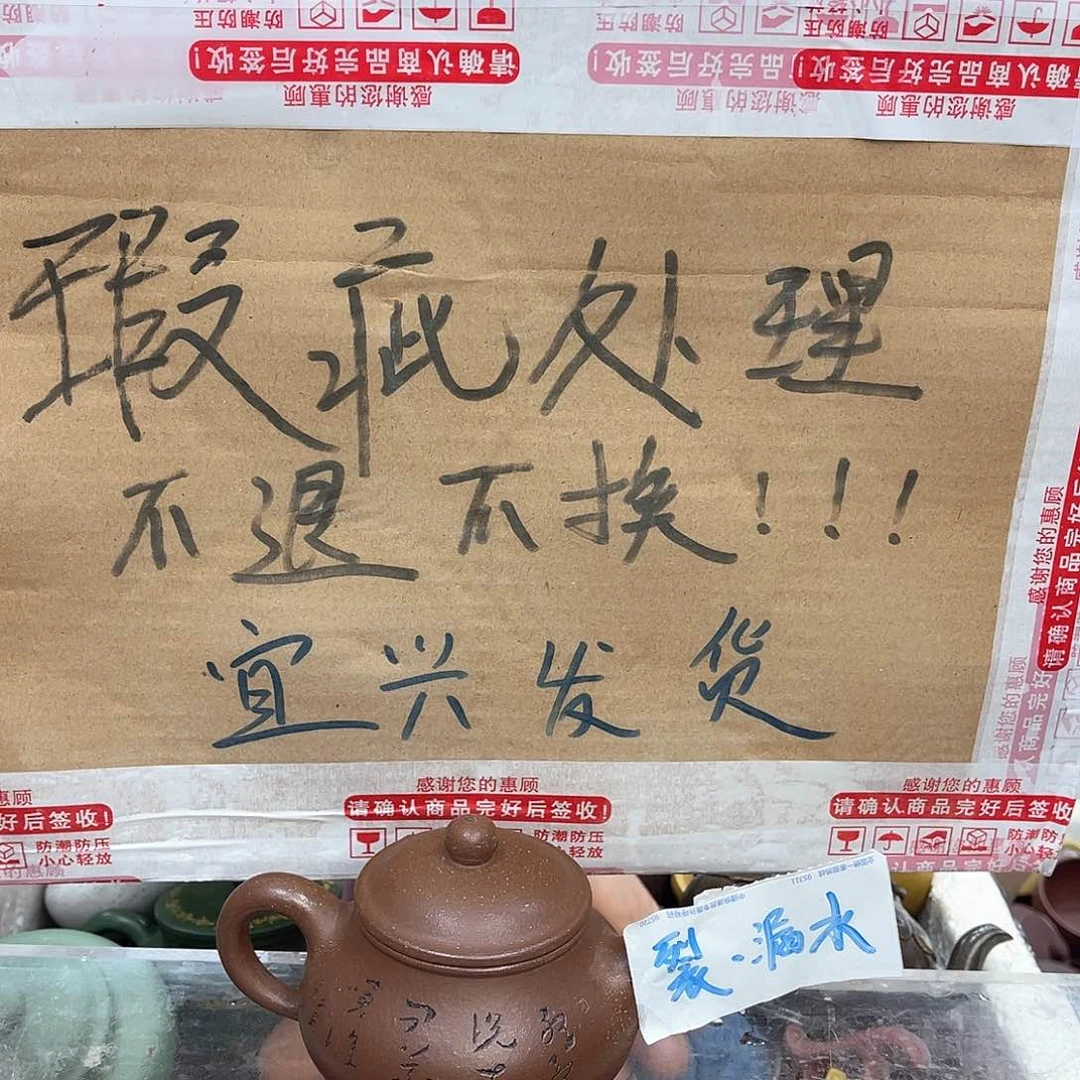 防潮防压
请确认商品完好后签收!
请确认商品完好后签收!
感谢您的惠顾
感谢您的惠顾
感谢您的惠顾
瑕疵处理
不退不换!!!
宜兴发货
感谢您的惠顾
请确认商品完好
感谢您的惠顾
商品完好
惠顾
好后签收!
防潮防压
小心轻放
感谢您的惠顾
请确认商品完好后签收!
防潮防压
小心轻放
感谢您的惠顾
请确认商品完好后签收
防潮防
小心轻
裂.漏水
95311
95720